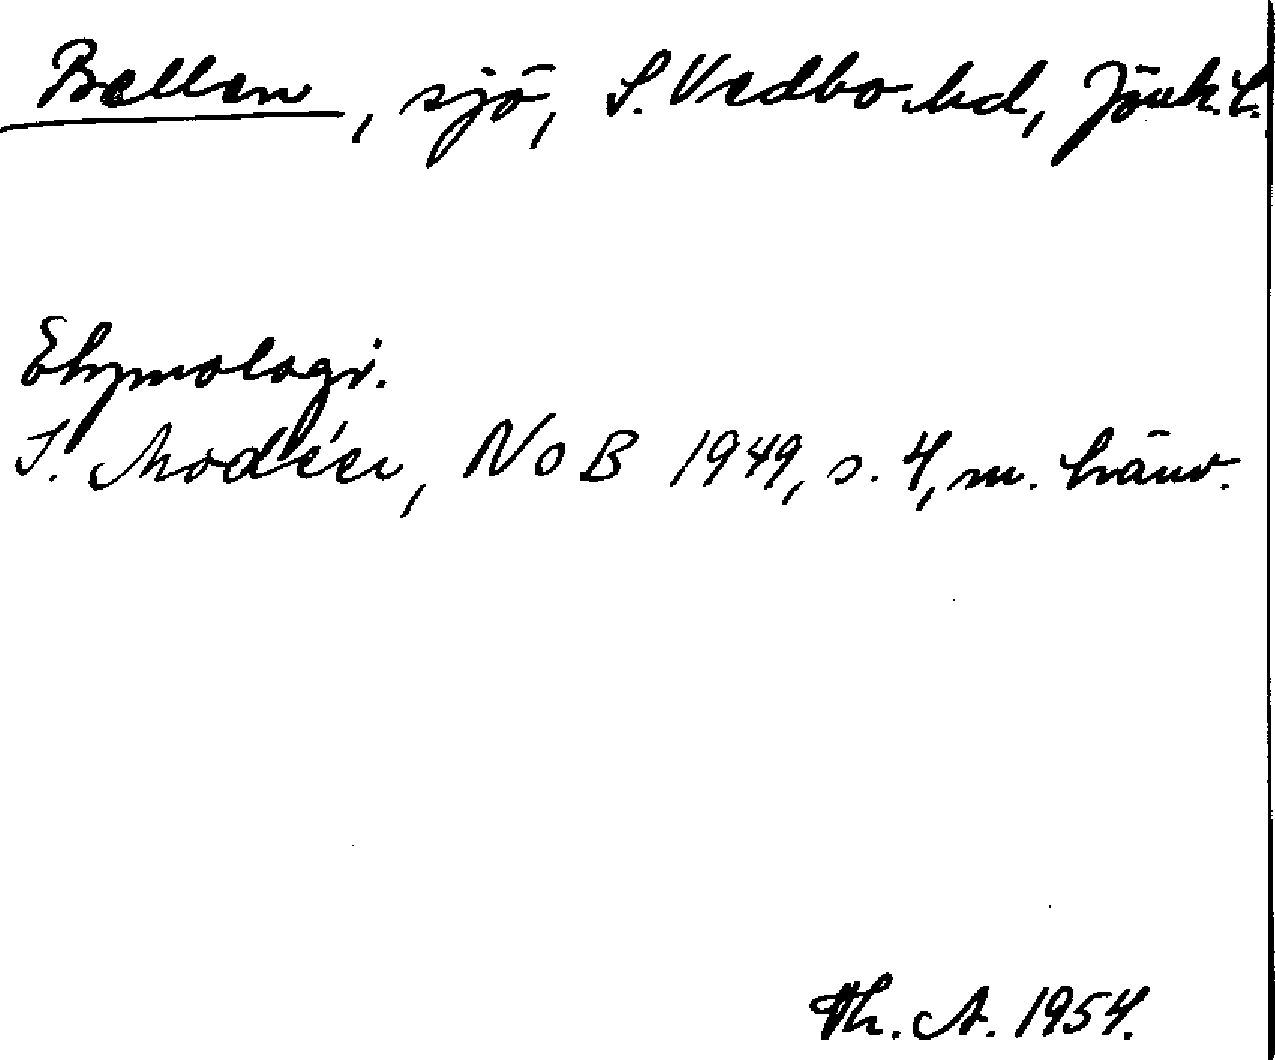 Bellen, sjö, S. Vedbo hd, Jönk. l.
Etymologi.
I. Modéer, NoB 1949, s. 4, m. hänv.
Th. A. 1954.